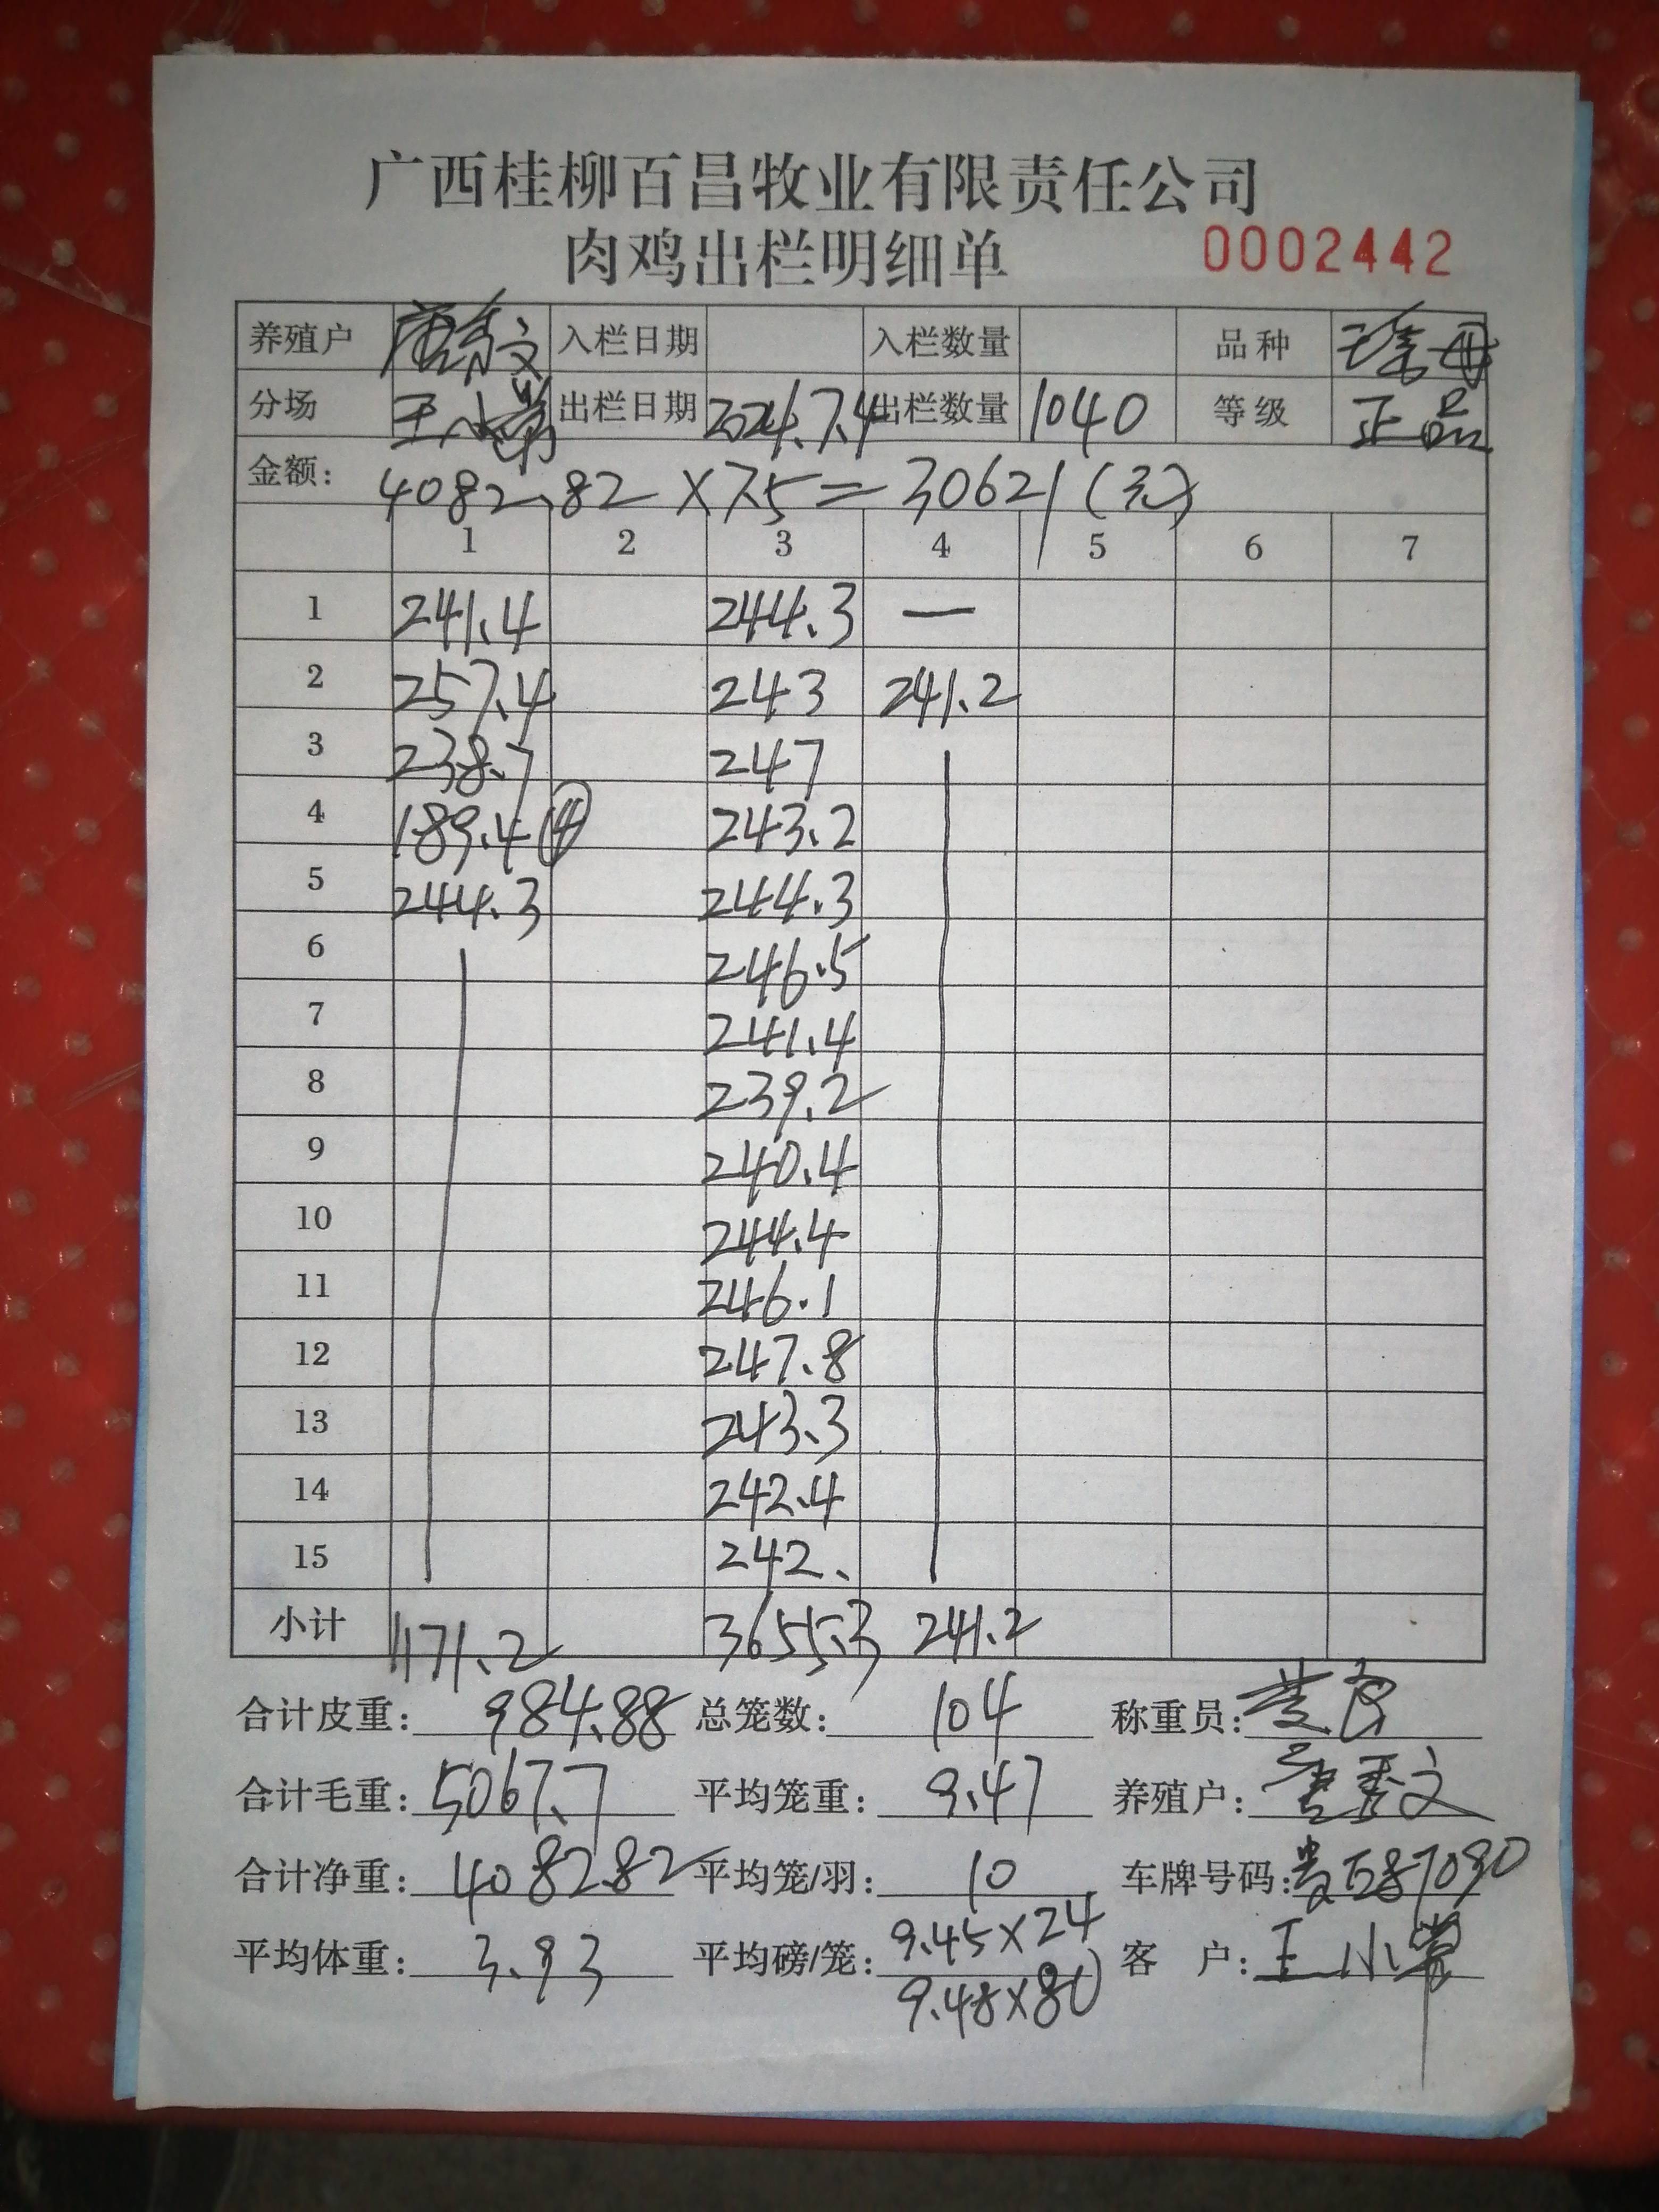 广西桂柳百昌牧业有限责任公司
肉鸡出栏明细单 0002442
养殖户 入栏日期 入栏数量 品种
分场 王小 出栏日期 2024.7.4 出栏数量 1040 等级 正品
金额: 4082.82×7.5=30621(元)
1 2 3 4 5 6 7
1 241.4 244.3 —
2 257.4 243 241.2
3 238.7 247
4 189.4 ④ 243.2
5 244.3 244.3
6 246.5
7 241.4
8 239.2
9 240.4
10 244.4
11 246.1
12 247.8
13 243.3
14 242.4
15 242.
小计 1171.2 3655.3 241.2
合计皮重: 984.88 总笼数: 104 称重员:
合计毛重: 5067.7 平均笼重: 9.47 养殖户: 文
合计净重: 4082.82 平均笼/羽: 10 车牌号码:
平均体重: 3.93 平均磅/笼: 9.45×24 客 户: 王小
9.48×80